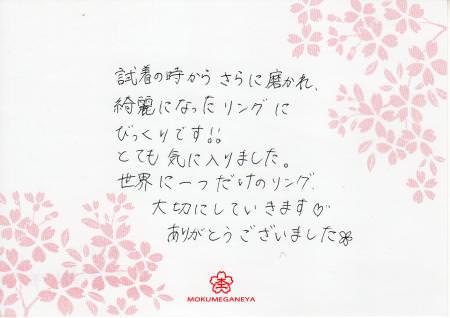 試着の時から さらに磨かれ、
綺麗になった リングに
びっくりです!!
とても 気に入りました。
世界に一つだけのリング、
大切にしていきます♡
ありがとうございました
MOKUMEGANEYA